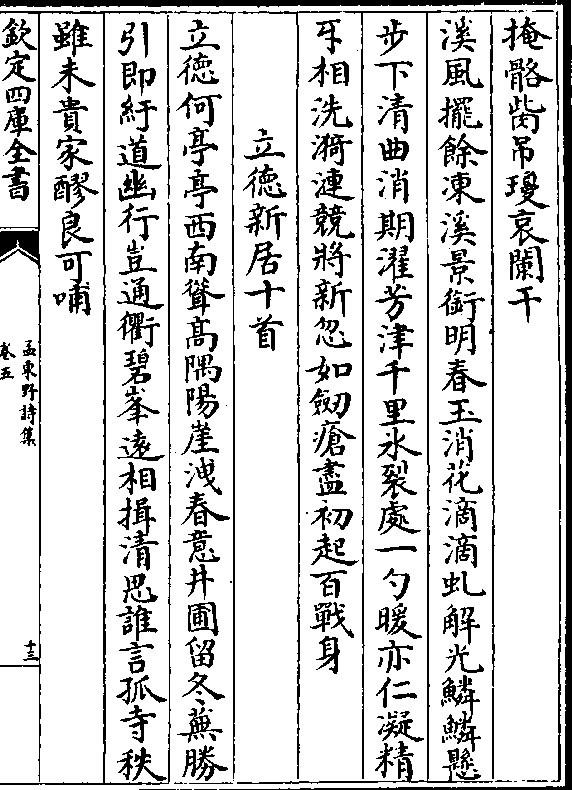 掩骼崗吊瓊哀闌干
溪風擺餘凍溪景銜明春玉消花滴滴虬解光鱗鱗懸
步下清曲消期濯芳津千里氷裂處一勺暖亦仁凝精
牙相洗漪漣競將新忽如劒瘡盡初起百戰身
立德新居十首
立徳何亭亭西南聳髙隅陽崖洩春意井圃留冬蕪勝
引即紆道幽行豈通衢碧峯逺相揖清思誰言孤寺秩
雖未貴家醪良可哺
欽定四庫全書
孟東野詩集
卷五
十三